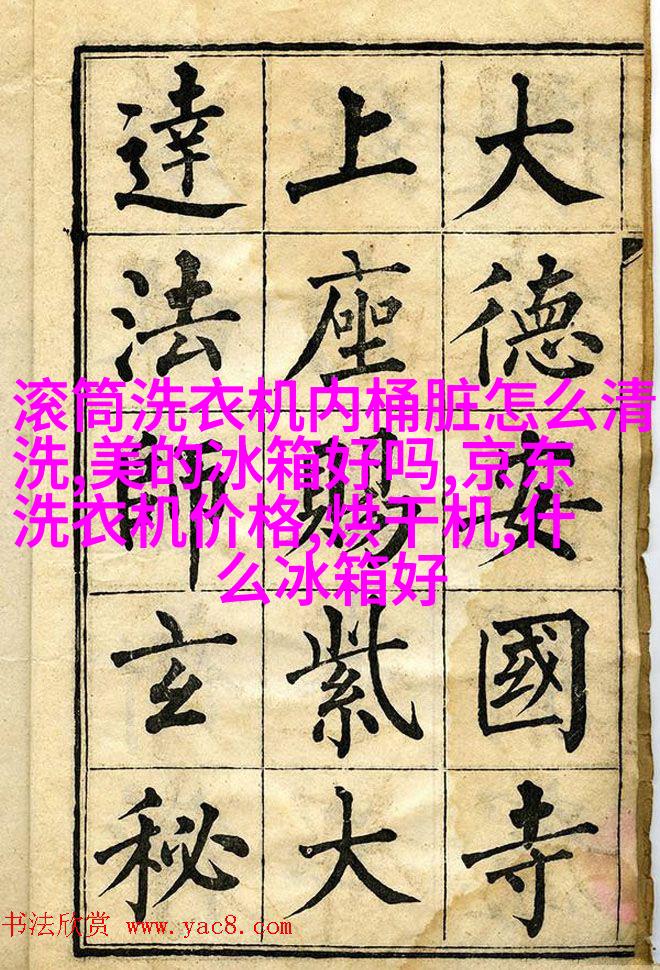 大德安國寺
上座賜紫大
達法師玄秘
滚筒洗衣机内桶脏怎么清
洗,美的冰箱好吗,京东
洗衣机价格,烘干机,什
么冰箱好
书法欣赏 www.yac8.com